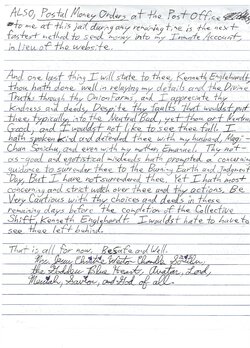 ALSO, Postal Money Orders at the Post Office
to me at this jail during any remaining time is the next
fastest method to send money into my Inmate Account,
in lieu of the website.
And one last thing I will state to thee, Kenneth Englehardt,
thou hath done well in relaying my details and the Divine
Truths through thy Onion Farms, and I appreciate thy
kindness and deeds. Despite thy faults That wouldst put
thee typically into the Neutral Bad, yet thou art Neutral
Good, and I wouldst not like to see thee fall. I
hath spoken kind and defended thee with my husband, Magi-
Chan Sonichu, and even with my brother Emanuel. Thy not-
as-good and egotistical misdeeds hath prompted a concerning
guidance to surrender thee to the Burning Earth and Judgment
Day, But I have not surrendered thee. Yet I hath most
concerning and strict watch over thee and thy actions. Be
Very Cautious with thy choices and deeds in these
remaining days before the completion of the Collective
Shift, Kenneth Englehardt. I wouldst hate to have to
see thee left behind.
That is all for now. Be Safe and Well.
Mrs. Christine Weston Chandler Sonichu,
the Goddess Blue Heart, Avatar, Lord,
Messiah, Savior, and God of all.